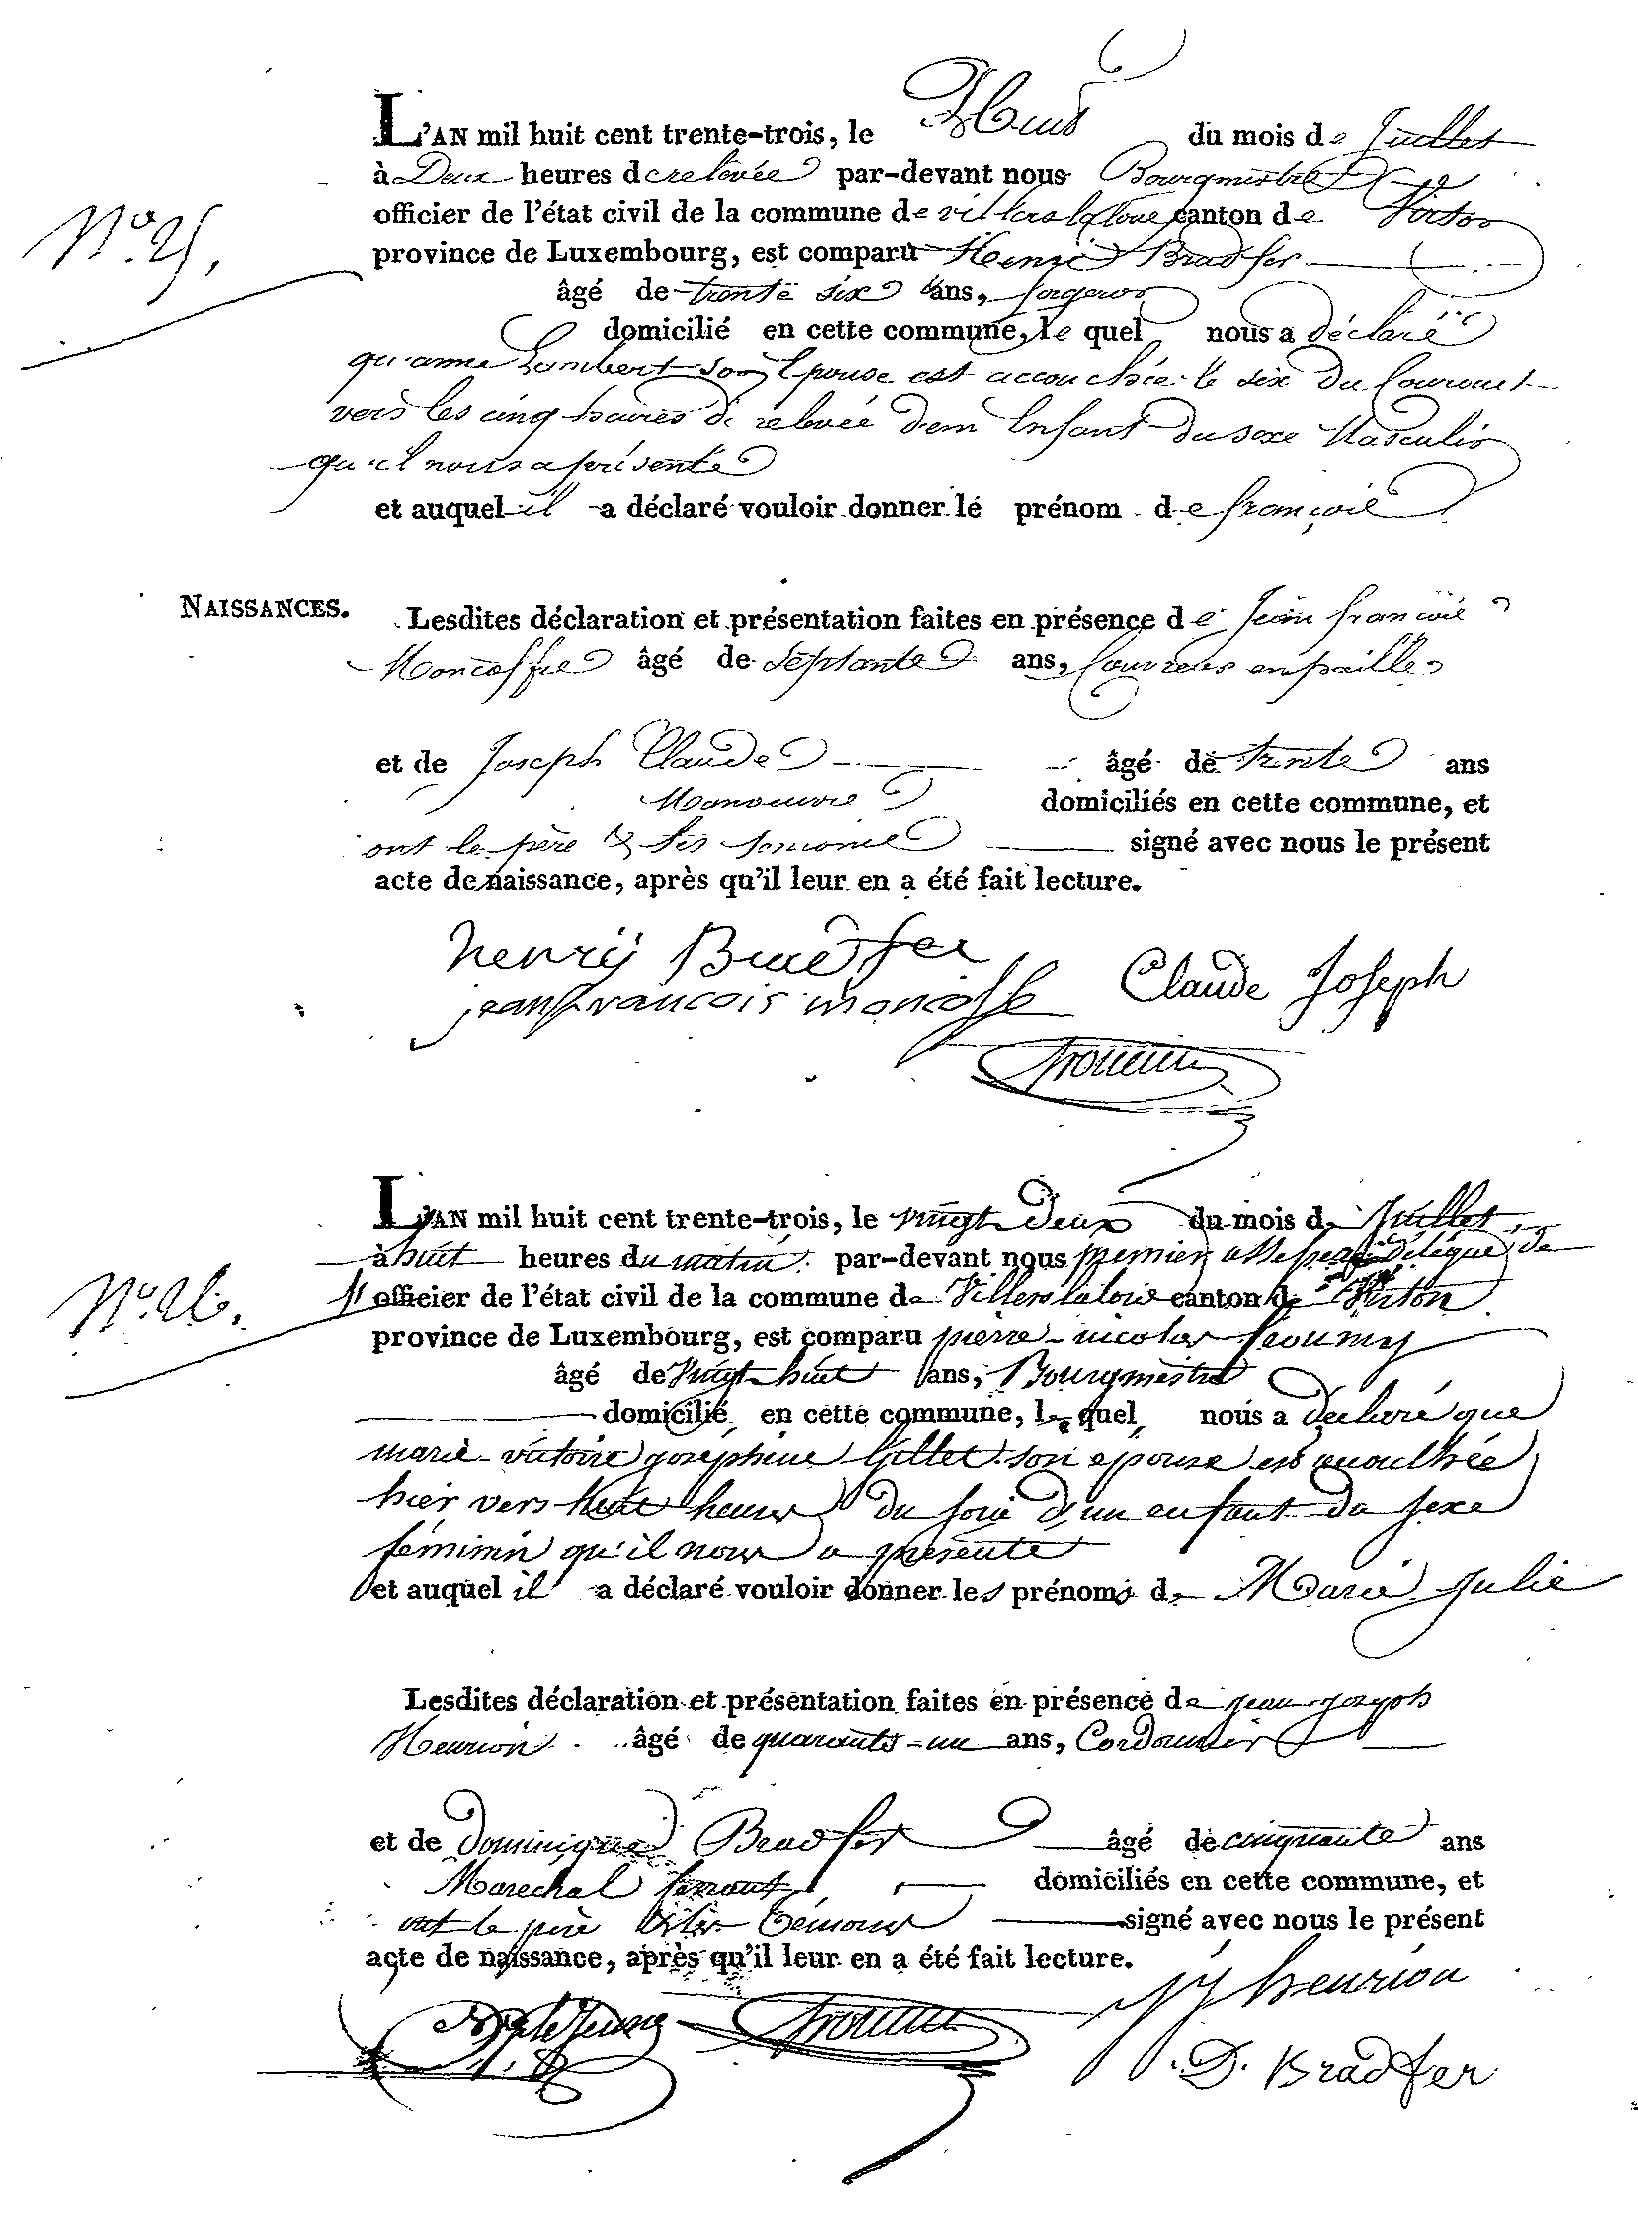 L'AN mil huit cent trente-trois, le huit du mois de Juillet
à Deux heures de relevée par-devant nous Bourgmestre
N.° 25.
officier de l'état civil de la commune de villers la loue canton de Virton
province de Luxembourg, est comparu Henri Bradfer
âgé de trente six ans, forgeron
domicilié en cette commune, le quel nous a déclaré
qu'anne Lambert son Epouse est accouchée le six du Courant
vers les cinq heures de relevée d'un Enfant du sexe Masculin
qu'il nous a présenté
et auquel il a déclaré vouloir donner le prénom de françois
NAISSANCES.
Lesdites déclaration et présentation faites en présence de Jean françois
Moncoffre âgé de Septante ans, Couvreur en paille
et de Joseph Claude âgé de trente ans
Manoeuvre domiciliés en cette commune, et
ont le père & les temoins signé avec nous le présent
acte de naissance, après qu'il leur en a été fait lecture.
henry Bradfer
Claude Joseph
jean francois moncoffe
L'AN mil huit cent trente-trois, le vingt deux du mois de Juillet
à huit heures du matin par-devant nous premier assesseur délégué de
N.° 26.
l'officier de l'état civil de la commune de Villers la loue canton de Virton
province de Luxembourg, est comparu pierre-nicolas
âgé de vingt huit ans, Bourgmestre
domicilié en cette commune, le quel nous a déclaré que
marie-victoire josephine Gillet son epouse est accouchée
hier vers huit heures du soir d'un enfant du sexe
féminin qu'il nous a présenté
et auquel il a déclaré vouloir donner les prénoms de Marie Julie
Lesdites déclaration et présentation faites en présence de jean joseph
Henrion âgé de quarante-un ans, Cordonnier
et de Dominique Bradfer âgé de cinquante ans
Marechal ferrant domiciliés en cette commune, et
ont le père & les témoins signé avec nous le présent
acte de naissance, après qu'il leur en a été fait lecture.
JJ henrion
D. Bradfer